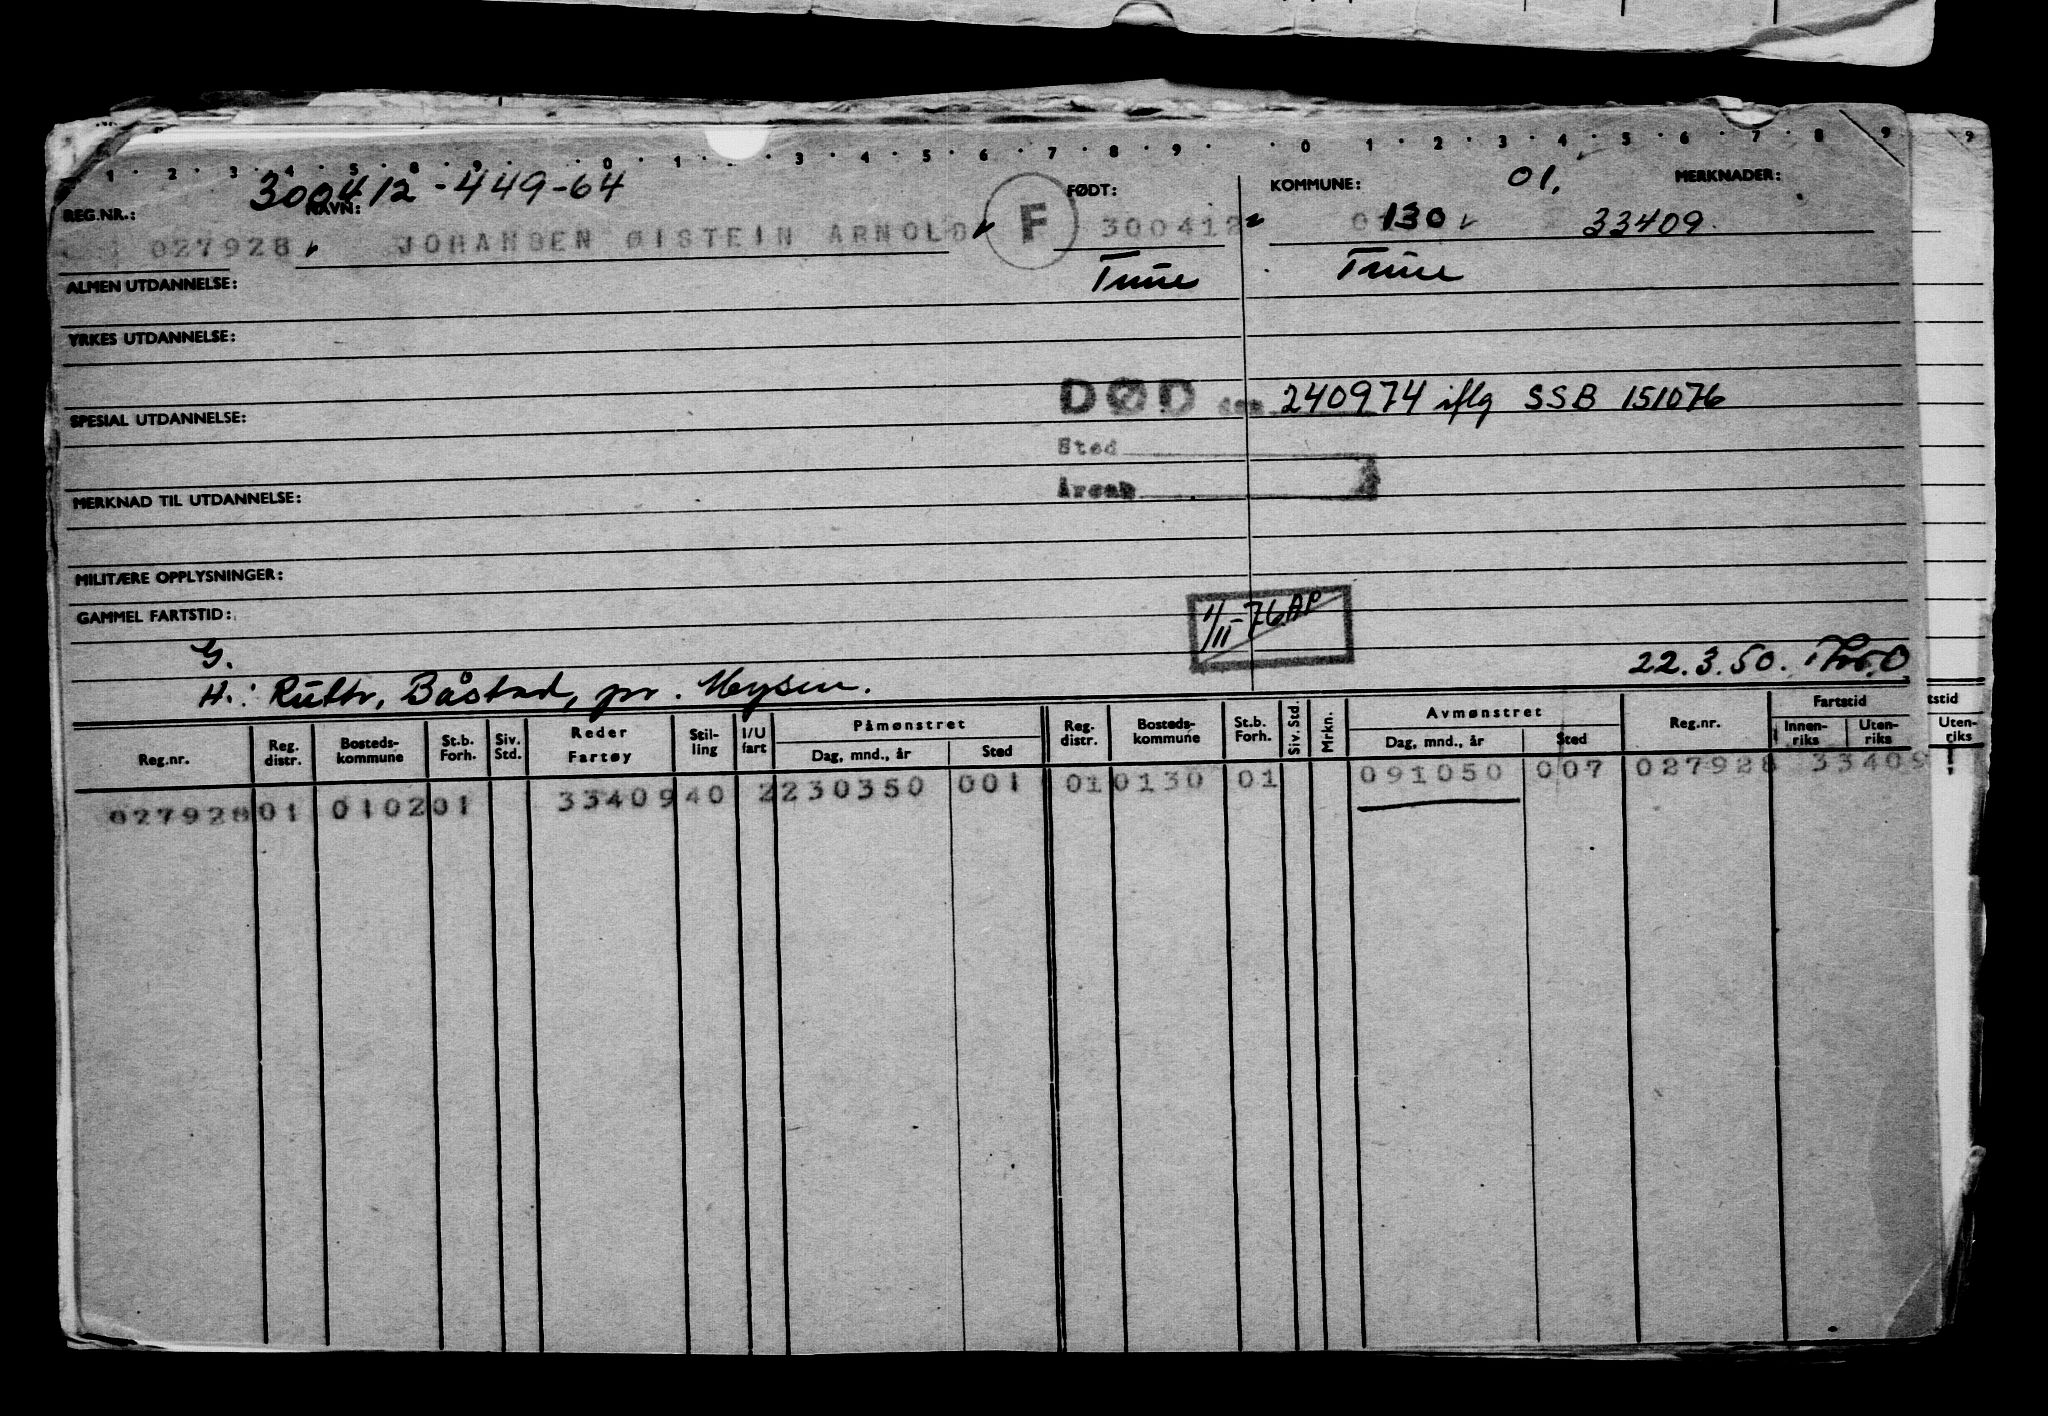 1 · 2 · 3 · 4 · 5 · 8 · 9 · 0 · 1 · 3 · 4 · 5 · 6 · 7 · 8 · 9 · 0 · 1 · 2 · 3 · 4 · 5 · 6 · 7 · 8 · 9
300412-449-64
01.
REG.NR.: NAVN: FØDT: KOMMUNE: MERKNADER:
027928 JOHANSEN ØISTEIN ARNOLD F 300412 130 33409.
ALMEN UTDANNELSE: Tune Tune
YRKES UTDANNELSE:
DØD den 240974 iflg SSB 151076
SPESIAL UTDANNELSE:
Sted
Årsak
MERKNAD TIL UTDANNELSE:
MILITÆRE OPPLYSNINGER:
GAMMEL FARTSTID:
1/11-76 AP
G.
22.3.50.
H.: Ruth, Båstad, pr. Mysen.
Reg.nr. Reg. distr. Bosteds-kommune St.b. Forh. Siv. Std. Reder Fartøy Stil-ling I/U fart Påmønstret Dag, mnd., år Sted Reg. distr. Bosteds-kommune St.b. Forh. Siv. Std. Mrkn. Avmønstret Dag, mnd., år Sted Reg.nr. Fartstid Innen-riks Uten-riks
tstid
Uten-riks
027928 01 0102 01 33409 40 2 230350 001 01 0130 01 091050 007 027928 33409